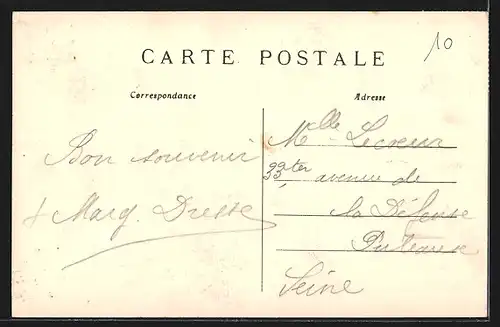 10
CARTE POSTALE
Correspondance
Adresse
Bon souvenir
Marg. Dresse
Mlle Lecoeur
33ter avenue de
la Défense
Puteaux
Seine